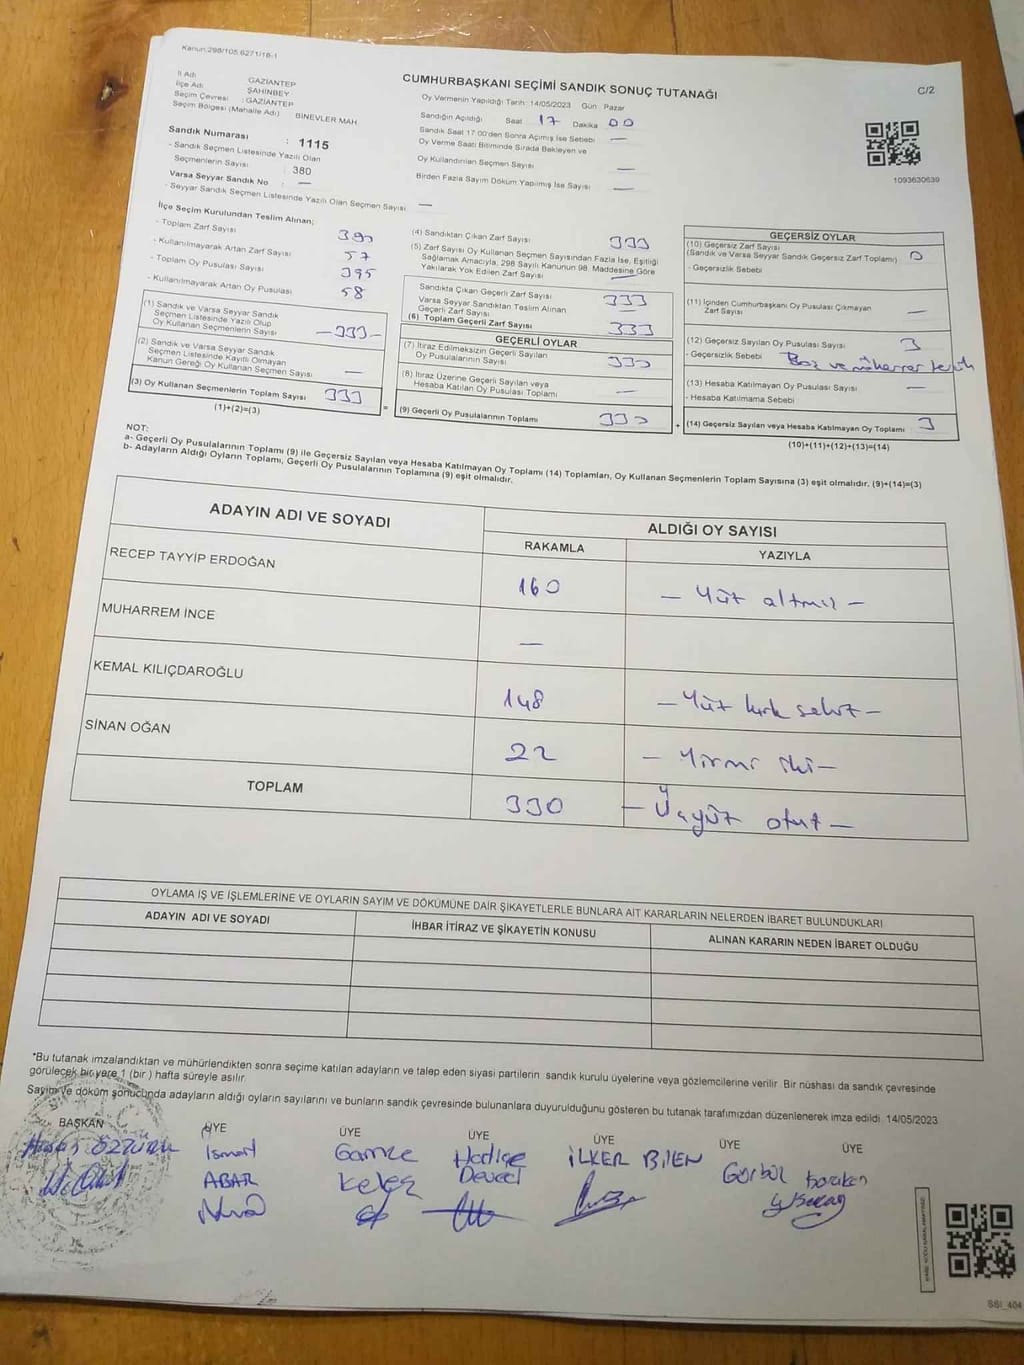 Kanun:298/105,6271/18-1
CUMHURBAŞKANI SEÇİMİ SANDIK SONUÇ TUTANAĞI
C/2
İl Adı GAZİANTEP
İlçe Adı ŞAHİNBEY
Seçim Çevresi : GAZİANTEP
Seçim Bölgesi (Mahalle Adı) BİNEVLER MAH.
Oy Vermenin Yapıldığı Tarih: 14/05/2023 Gün : Pazar
Sandığın Açıldığı Saat 17 Dakika 00
Sandık Saat 17:00'den Sonra Açılmış İse Sebebi —
Oy Verme Saati Bitiminde Sırada Bekleyen ve
Oy Kullandırılan Seçmen Sayısı —
Birden Fazla Sayım Döküm Yapılmış İse Sayısı —
1093630639
Sandık Numarası : 1115
- Sandık Seçmen Listesinde Yazılı Olan
Seçmenlerin Sayısı : 380
Varsa Seyyar Sandık No : —
- Seyyar Sandık Seçmen Listesinde Yazılı Olan Seçmen Sayısı —
İlçe Seçim Kurulundan Teslim Alınan;
- Toplam Zarf Sayısı 390
- Kullanılmayarak Artan Zarf Sayısı 57
- Toplam Oy Pusulası Sayısı 395
- Kullanılmayarak Artan Oy Pusulası 58
(1) Sandık ve Varsa Seyyar Sandık
Seçmen Listesinde Yazılı Olup
Oy Kullanan Seçmenlerin Sayısı —333—
(2) Sandık ve Varsa Seyyar Sandık
Seçmen Listesinde Kayıtlı Olmayan
Kanun Gereği Oy Kullanan Seçmen Sayısı —
(3) Oy Kullanan Seçmenlerin Toplam Sayısı 333
(1)+(2)=(3)
=
(4) Sandıktan Çıkan Zarf Sayısı 333
(5) Zarf Sayısı Oy Kullanan Seçmen Sayısından Fazla İse, Eşitliği
Sağlamak Amacıyla, 298 Sayılı Kanunun 98. Maddesine Göre
Yakılarak Yok Edilen Zarf Sayısı —
Sandıkta Çıkan Geçerli Zarf Sayısı 333
Varsa Seyyar Sandıktan Teslim Alınan
Geçerli Zarf Sayısı —
(6) Toplam Geçerli Zarf Sayısı 333
GEÇERLİ OYLAR
(7) İtiraz Edilmeksizin Geçerli Sayılan
Oy Pusulalarının Sayısı 330
(8) İtiraz Üzerine Geçerli Sayılan veya
Hesaba Katılan Oy Pusulası Toplamı —
(9) Geçerli Oy Pusulalarının Toplamı 330
+
GEÇERSİZ OYLAR
(10) Geçersiz Zarf Sayısı
(Sandık ve Varsa Seyyar Sandık Geçersiz Zarf Toplamı) 0
- Geçersizlik Sebebi
(11) İçinden Cumhurbaşkanı Oy Pusulası Çıkmayan
Zarf Sayısı —
(12) Geçersiz Sayılan Oy Pusulası Sayısı 3
- Geçersizlik Sebebi Boş ve müharrer tercih
(13) Hesaba Katılmayan Oy Pusulası Sayısı —
- Hesaba Katılmama Sebebi
(14) Geçersiz Sayılan veya Hesaba Katılmayan Oy Toplamı 3
(10)+(11)+(12)+(13)=(14)
NOT:
a- Geçerli Oy Pusulalarının Toplamı (9) ile Geçersiz Sayılan veya Hesaba Katılmayan Oy Toplamı (14) Toplamları, Oy Kullanan Seçmenlerin Toplam Sayısına (3) eşit olmalıdır. (9)+(14)=(3)
b- Adayların Aldığı Oyların Toplamı, Geçerli Oy Pusulalarının Toplamına (9) eşit olmalıdır.
ADAYIN ADI VE SOYADI ALDIĞI OY SAYISI
RAKAMLA YAZIYLA
RECEP TAYYİP ERDOĞAN 160 — Yüz altmış —
MUHARREM İNCE —
KEMAL KILIÇDAROĞLU 148 — Yüz kırk sekiz —
SİNAN OĞAN 22 — Yirmi iki —
TOPLAM 330 — Üçyüz otuz —
OYLAMA İŞ VE İŞLEMLERİNE VE OYLARIN SAYIM VE DÖKÜMÜNE DAİR ŞİKAYETLERLE BUNLARA AİT KARARLARIN NELERDEN İBARET BULUNDUKLARI
ADAYIN ADI VE SOYADI İHBAR İTİRAZ VE ŞİKAYETİN KONUSU ALINAN KARARIN NEDEN İBARET OLDUĞU
*Bu tutanak imzalandıktan ve mühürlendikten sonra seçime katılan adayların ve talep eden siyasi partilerin sandık kurulu üyelerine veya gözlemcilerine verilir. Bir nüshası da sandık çevresinde
görülecek bir yere 1 (bir ) hafta süreyle asılır.
Sayım ve döküm sonucunda adayların aldığı oyların sayılarını ve bunların sandık çevresinde bulunanlara duyurulduğunu gösteren bu tutanak tarafımızdan düzenlenerek imza edildi. 14/05/2023
BAŞKAN ÜYE ÜYE ÜYE ÜYE ÜYE ÜYE
ÖZTÜRK İsmail Gamze Hadice İLKER BİLEN Gürbüz
ABAR Keleş Deveci
SSI_404